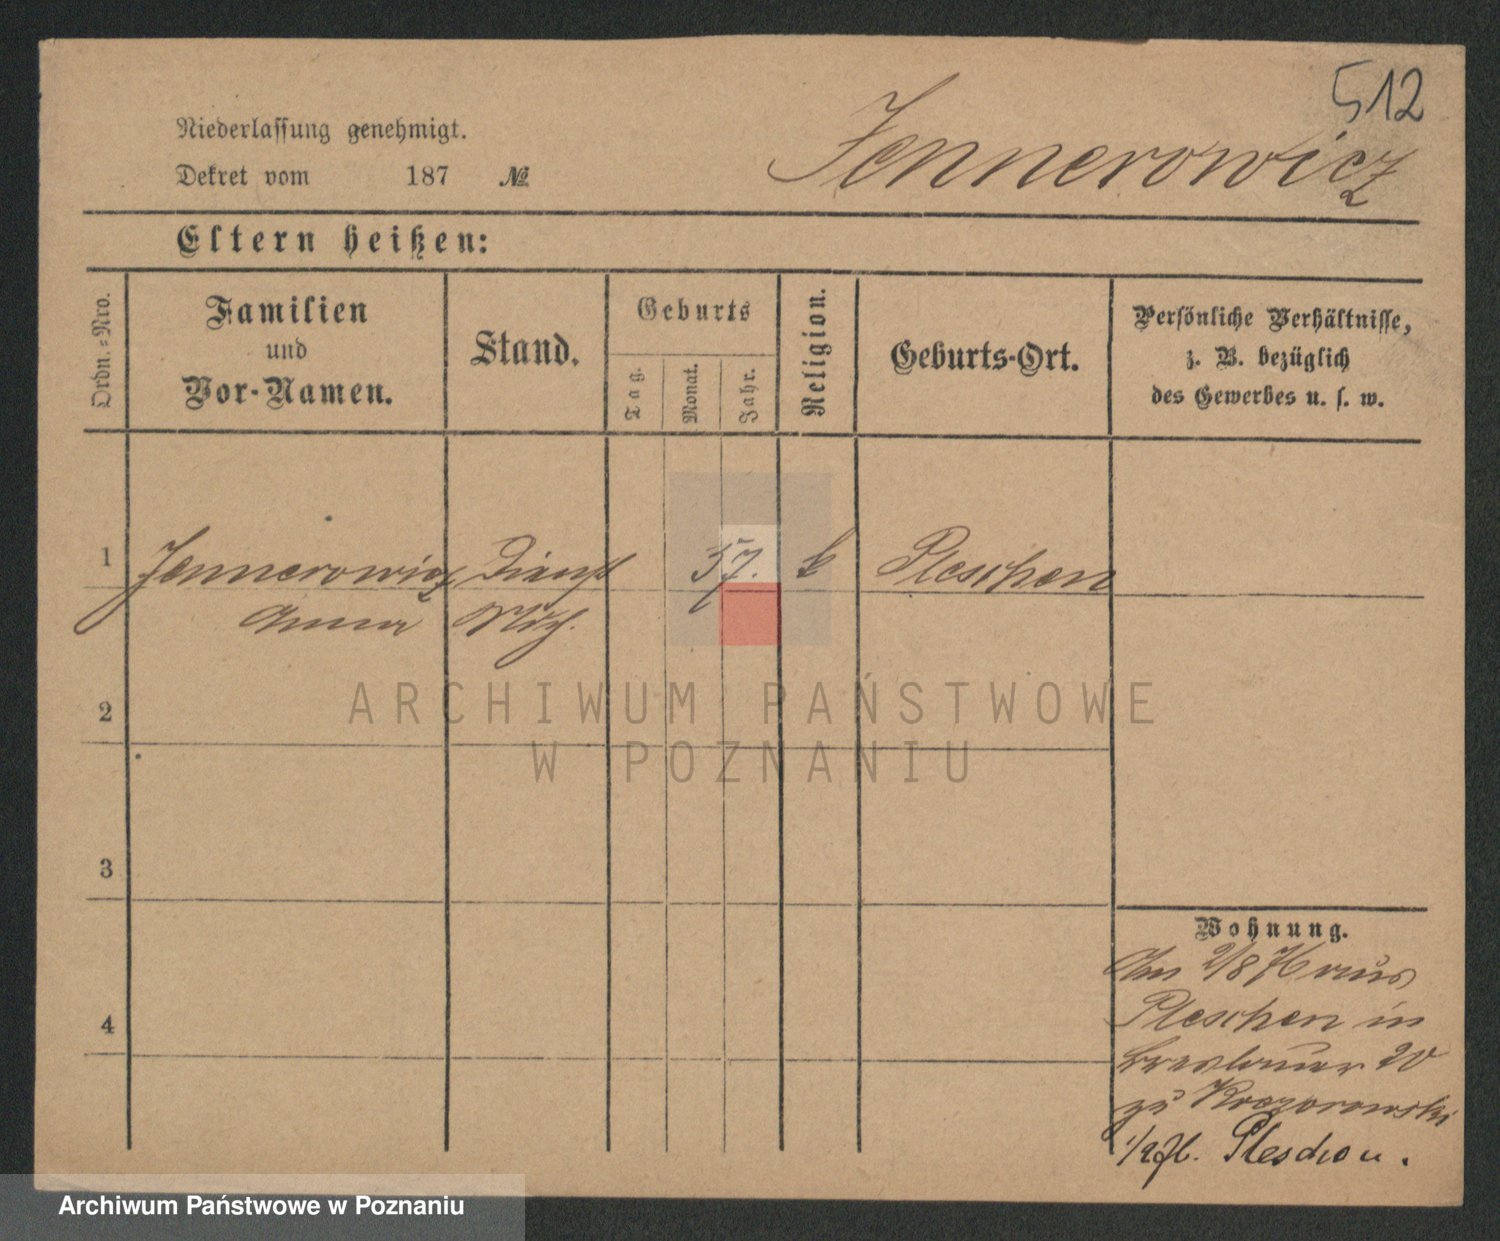 512
Niederlassung genehmigt.
Jennerowicz
Dekret vom 187 №
Eltern heißen:
Ordn.-Nro.
Familien
und
Vor-Namen.
Stand.
Geburts
Tag.
Monat.
Jahr.
Religion.
Geburts-Ort.
Persönliche Verhältnisse,
z. B. bezüglich
des Gewerbes u. s. w.
1 Jennerowicz Dienst 57. k Pleschen
Anna
2
3
4
Wohnung.
Am 2/8 76 aus
Pleschen in
Breslauer 20
zu
Pleschen.
ARCHIWUM PAŃSTWOWE
W POZNANIU
Archiwum Państwowe w Poznaniu